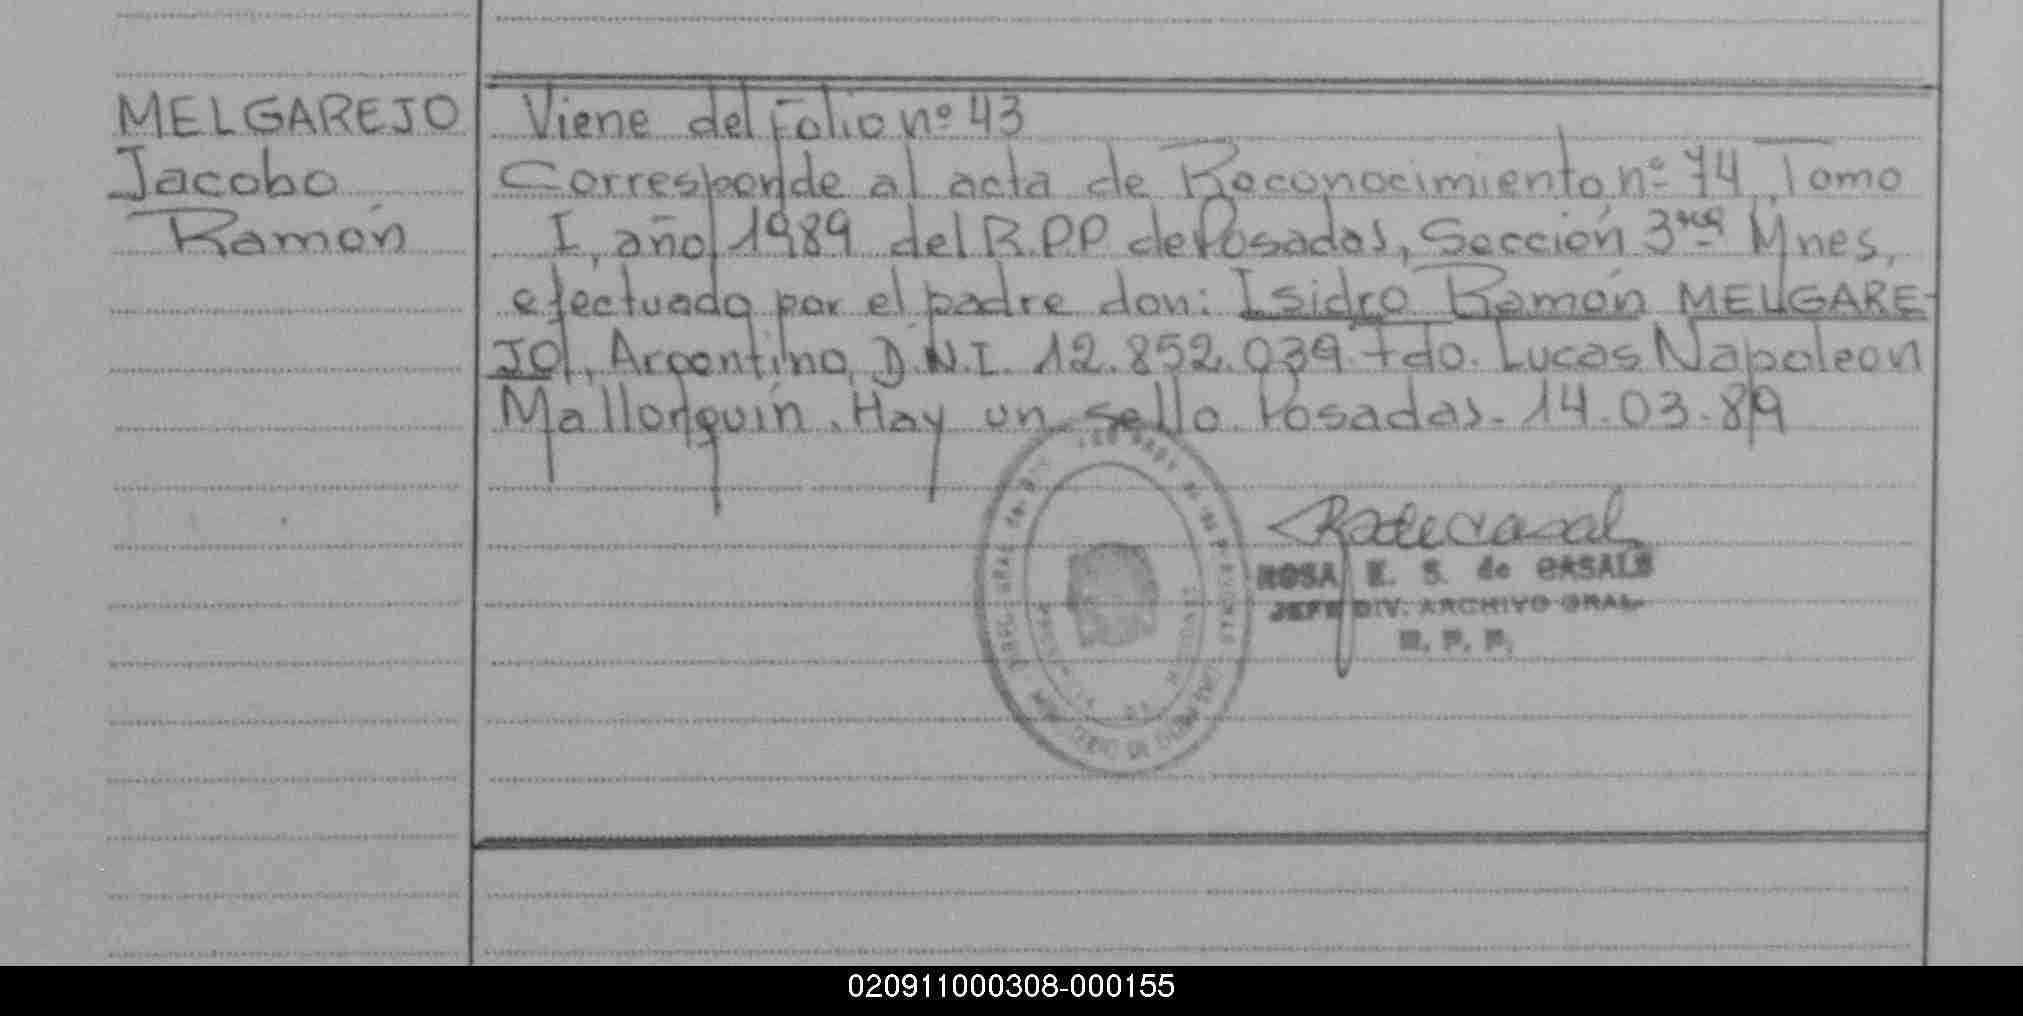 MELGAREJO
Jacobo
Ramón
Viene del Folio nº 43
Corresponde al acta de Reconocimiento, nº 74, Tomo
I, año 1989 del R.P.P. de Posadas, Sección 3ra Mnes,
efectuado por el padre don: Isidro Ramón MELGARE-
JO, Argentino, D.N.I. 12.852.039. Fdo. Lucas Napoleon
Mallorquín. Hay un sello. Posadas. 14.03.89
ROSA E. S. de CASALS
JEFE DIV. ARCHIVO GRAL.
R. P. P.
020911000308-000155